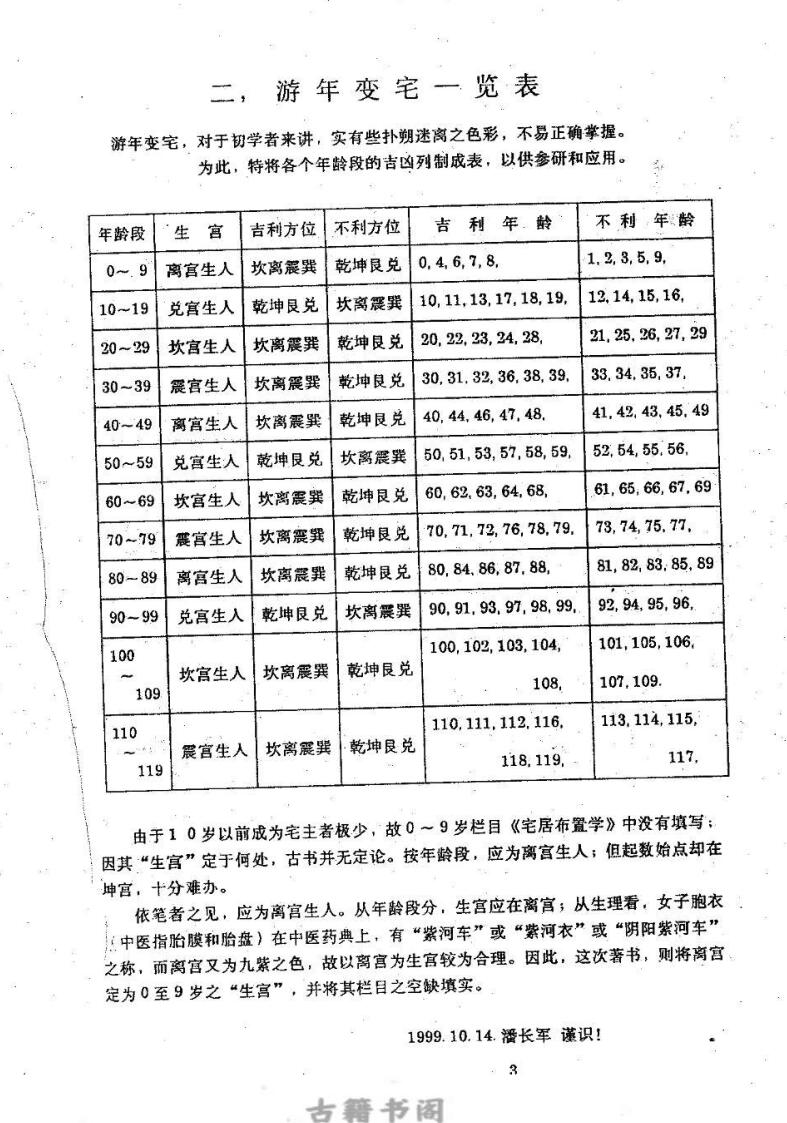 二，游年变宅一览表
游年变宅，对于切学者来讲，实有些扑朔迷离之色彩，不易正确掌握。
为此，特将各个年龄段的吉凶列制成表，以供参研和应用。
年龄段 生宫 吉利方位 不利方位 吉利年龄 不利年龄
0～9 离宫生人 坎离震巽 乾坤艮兑 0,4,6,7,8, 1,2,3,5,9,
10～19 兑宫生人 乾坤艮兑 坎离震巽 10,11,13,17,18,19, 12,14,15,16,
20～29 坎宫生人 坎离震巽 乾坤艮兑 20,22,23,24,28, 21,25,26,27,29
30～39 震宫生人 坎离震巽 乾坤艮兑 30,31,32,36,38,39, 33,34,35,37,
40～49 离宫生人 坎离震巽 乾坤艮兑 40,44,46,47,48, 41,42,43,45,49
50～59 兑宫生人 乾坤艮兑 坎离震巽 50,51,53,57,58,59, 52,54,55,56,
60～69 坎宫生人 坎离震巽 乾坤艮兑 60,62,63,64,68, 61,65,66,67,69
70～79 震宫生人 坎离震巽 乾坤艮兑 70,71,72,76,78,79, 73,74,75,77,
80～89 离宫生人 坎离震巽 乾坤艮兑 80,84,86,87,88, 81,82,83,85,89
90～99 兑宫生人 乾坤艮兑 坎离震巽 90,91,93,97,98,99, 92,94,95,96,
100 100,102,103,104, 101,105,106,
～ 坎宫生人 坎离震巽 乾坤艮兑
109 108, 107,109.
110 110,111,112,116, 113,114,115,
～ 震宫生人 坎离震巽 乾坤艮兑
119 118,119, 117,
由于10岁以前成为宅主者极少，故0～9岁栏目《宅居布置学》中没有填写；
因其“生宫”定于何处，古书并无定论。按年龄段，应为离宫生人；但起数始点却在
坤宫，十分难办。
依笔者之见，应为离宫生人。从年龄段分，生宫应在离宫；从生理看，女子胞衣
（中医指胎膜和胎盘）在中医药典上，有“紫河车”或“紫河衣”或“阴阳紫河车”
之称，而离宫又为九紫之色，故以离宫为生宫较为合理。因此，这次著书，则将离宫
定为0至9岁之“生宫”，并将其栏目之空缺填实。
1999.10.14.潘长军 谨识！
3
古籍书阁